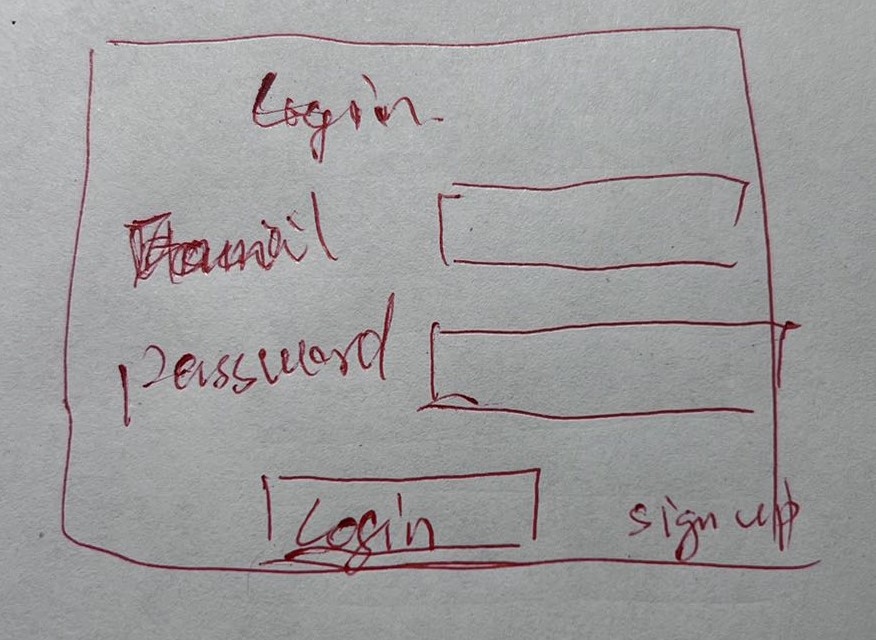 Login
Email
password
Login
sign up